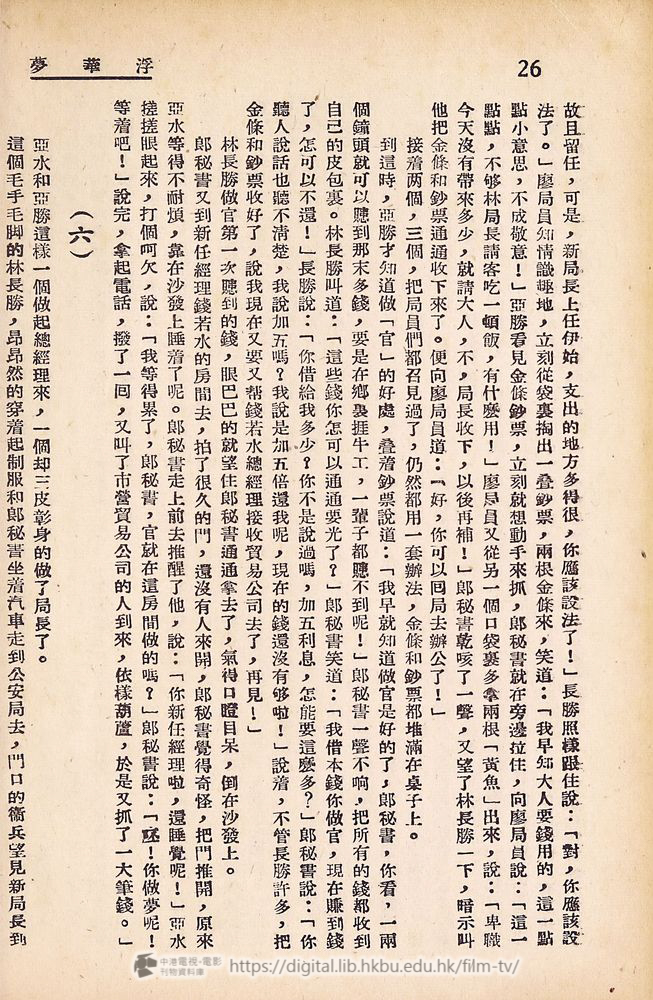 浮華夢
26
故且留任，可是，新局長上任伊始，支出的地方多得很，你應該設法了！」長勝照樣跟住說：「對，你應該設
法了。」廖局員知情識趣地，立刻從袋裏掏出一叠鈔票，兩根金條來，笑道：「我早知大人要錢用的，這一點
點小意思，不成敬意！」亞勝看見金條鈔票，立刻就想動手來抓，郎秘書就在旁邊拉住，向廖局員說：「這一
點點，不够林局長請客吃一頓飯，有什麽用！」廖局員又從另一個口袋裏多拿兩根「黃魚」出來，說：「卑職
今天沒有帶來多少，就請大人，不，局長收下，以後再補！」郎秘書乾咳了一聲，又望了林長勝一下，暗示叫
他把金條和鈔票通通收下來了。便向廖局員道：「好，你可以回局去辦公了！」
接着两個，三個，把局員們都召見過了，仍然都用一套辦法，金條和鈔票都堆滿在桌子上。
到這時，亞勝才知道做「官」的好處，叠着鈔票說道：「我早就知道做官是好的了，郎秘書，你看，一兩
個鐘頭就可以賺到那末多錢，要是在鄉裏捱牛工，一輩子都賺不到呢！」郎秘書一聲不响，把所有的錢都收到
自己的皮包裏。林長勝叫道：「這些錢你怎可以通通要光了？」郎秘書笑道：「我借本錢你做官，現在賺到錢
了，怎可以不還！」長勝說：「你借給我多少？你不是說過嗎，加五利息，怎能要這麽多？」郎秘書說：「你
聽人說話也聽不清楚，我說加五嗎？我說是加五倍還我呢，現在的錢還沒有够啦！」說着，不管長勝許多，把
金條和鈔票收好了，說我現在又要又帮錢若水總經理接收貿易公司去了，再見！」
林長勝做官第一次賺到的錢，眼巴巴的就望住郎秘書通通拿去了，氣得口瞪目呆，倒在沙發上。
郎秘書又到新任經理錢若水的房間去，拍了很久的門，還沒有人來開，郎秘書覺得奇怪，把門推開，原來
亞水等得不耐煩，靠在沙發上睡着了呢。郎秘書走上前去推醒了他，說：「你新任經理啦，還睡覺呢！」亞水
搓搓眼起來，打個呵欠，說：「我等得累了，郎秘書，官就在這房間做的嗎？」郎秘書說：「啋！你做夢呢！
等着吧！」說完，拿起電話，撥了一囘，又叫了市營貿易公司的人到來，依樣葫蘆，於是又抓了一大筆錢。」
（六）
亞水和亞勝這樣一個做起總經理來，一個却三皮彰身的做了局長了。
這個毛手毛脚的林長勝，昂昂然的穿着起制服和郎秘書坐着汽車走到公安局去，門口的衞兵望見新局長到
中港電視·電影
刊物資料庫
https://digital.lib.hkbu.edu.hk/film-tv/